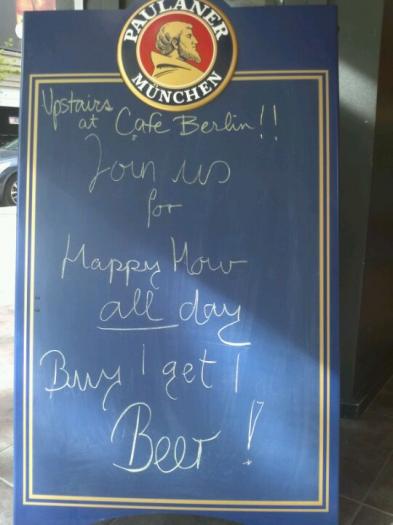 PAULANER
MÜNCHEN
Upstairs
at Cafe Berlin!!
Join us
for
Happy Hour
all day
Buy 1 get 1
Beer!